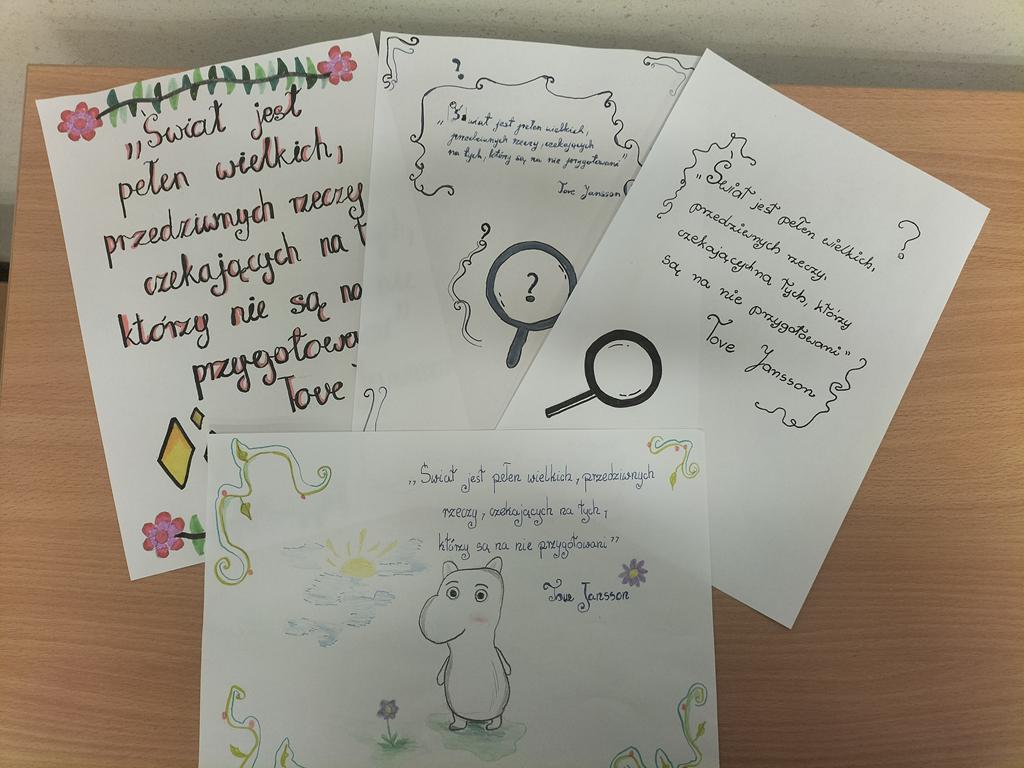 „Świat jest
pełen wielkich,
przedziwnych rzeczy
czekających na t
którzy nie są na
przygotowa
Tove
?
„Świat jest pełen wielkich,
przedziwnych rzeczy, czekających
na tych, którzy są, na nie przygotowani"
Tove Jansson
?
?
„Świat jest pełen wielkich,
przedziwnych rzeczy,
czekających na tych, którzy
są na nie przygotowani"
Tove Jansson
?
„Świat jest pełen wielkich, przedziwnych
rzeczy, czekających na tych,
którzy są na nie przygotowani"
Tove Jansson